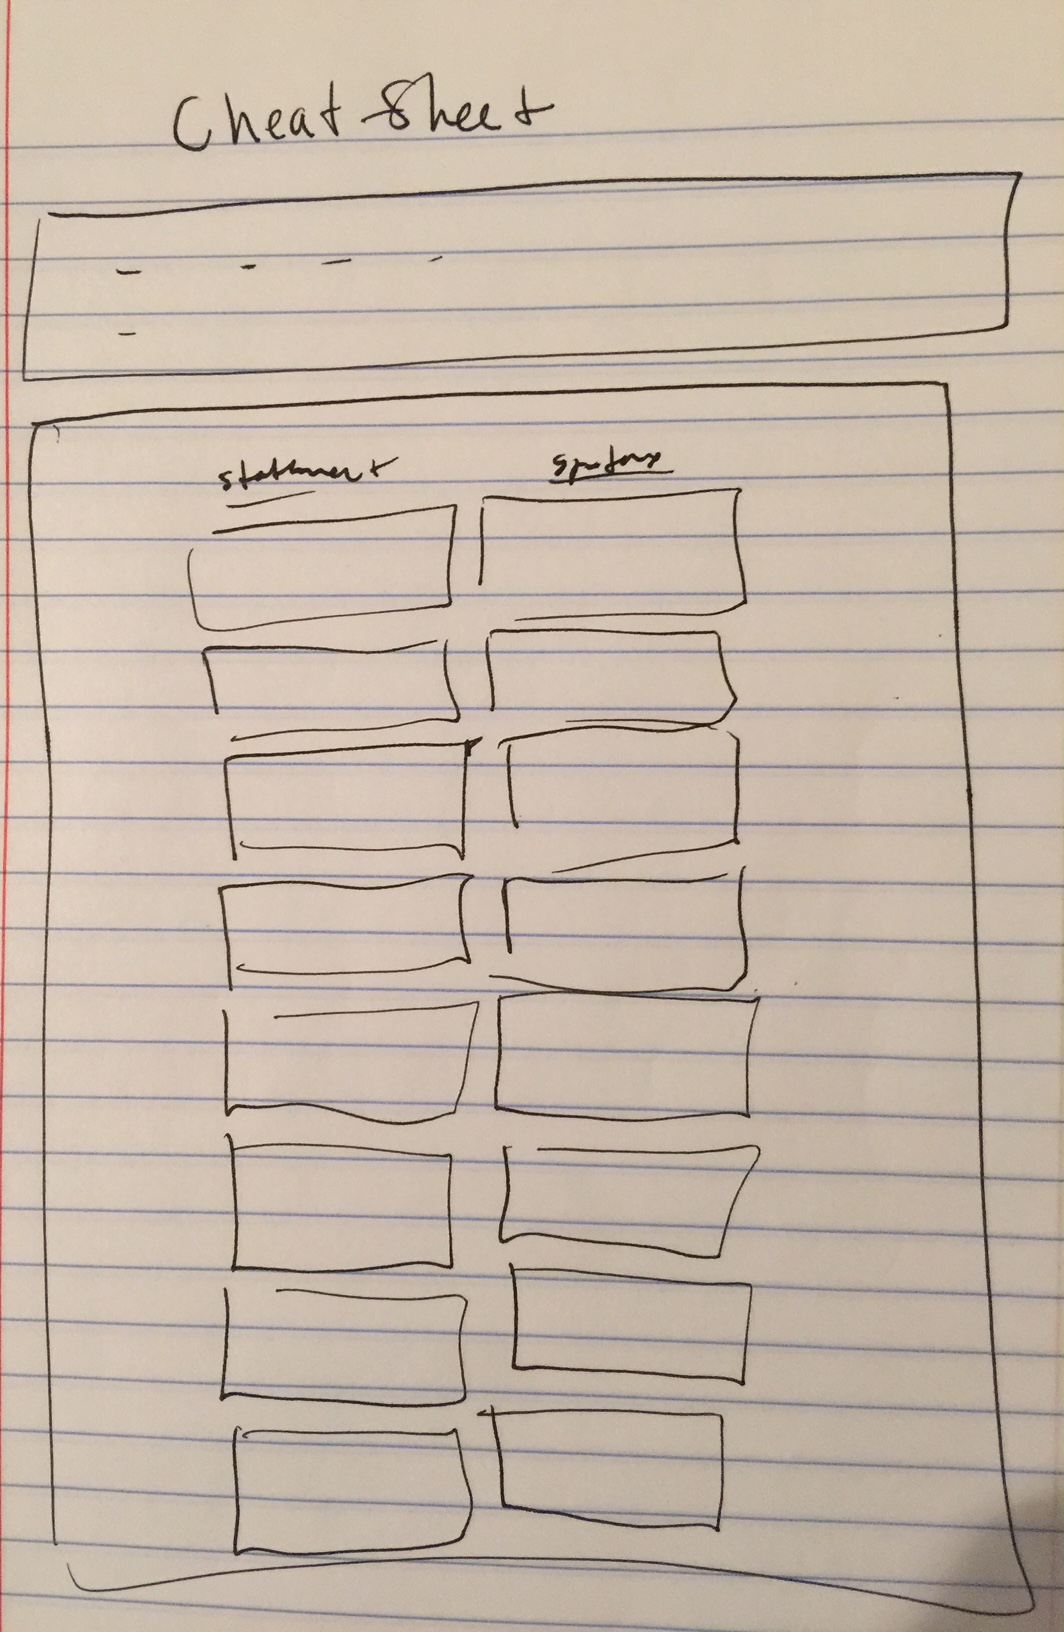 Cheat Sheet
statement syntax